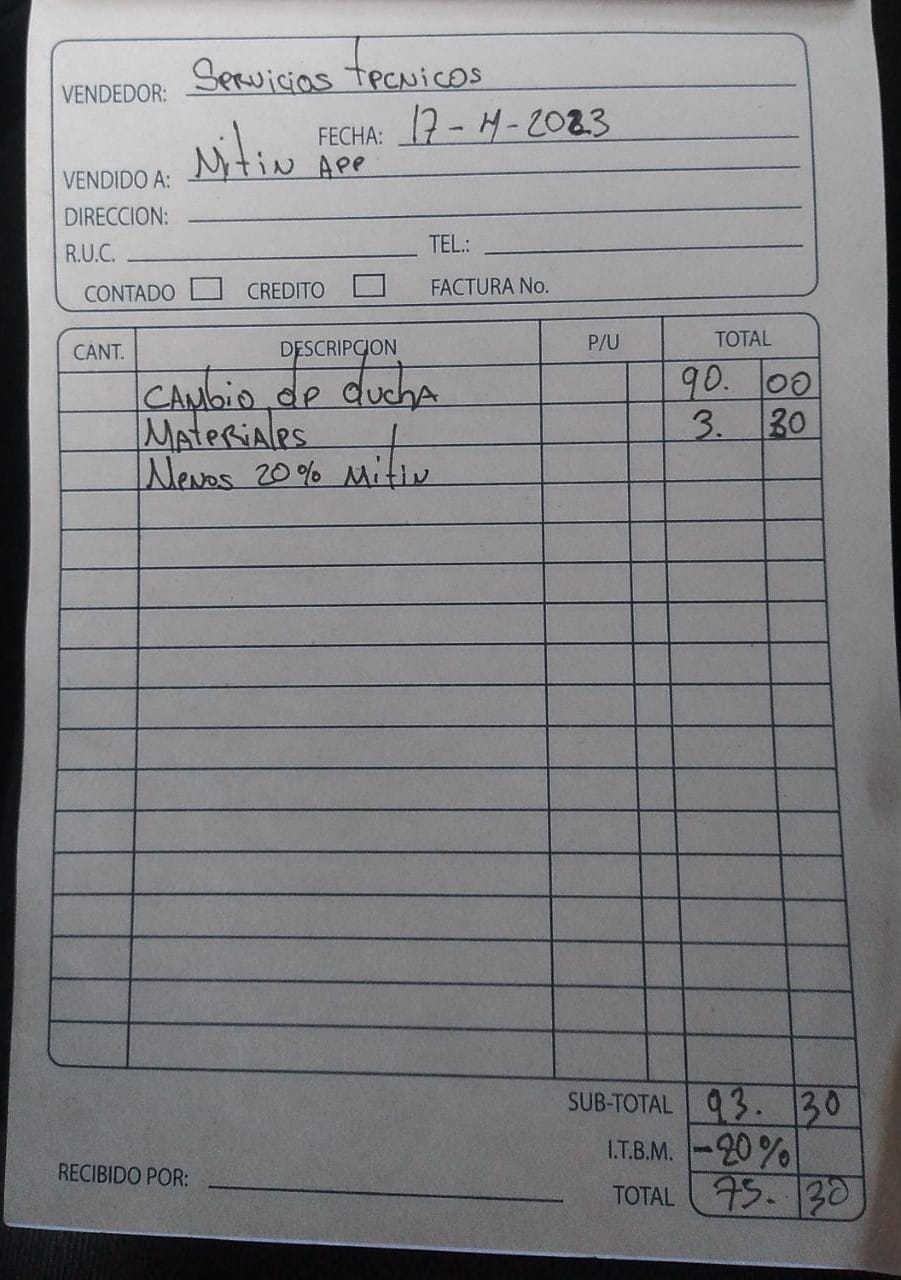 VENDEDOR: Servicios Tecnicos
FECHA: 17-4-2023
VENDIDO A: Mitin APP
DIRECCION:
R.U.C. TEL.:
CONTADO CREDITO FACTURA No.
CANT. DESCRIPCION P/U TOTAL
Cambio de ducha 90. 00
Materiales 3. 30
Menos 20% Mitin
SUB-TOTAL 93. 30
I.T.B.M. -20%
RECIBIDO POR: TOTAL 75. 30